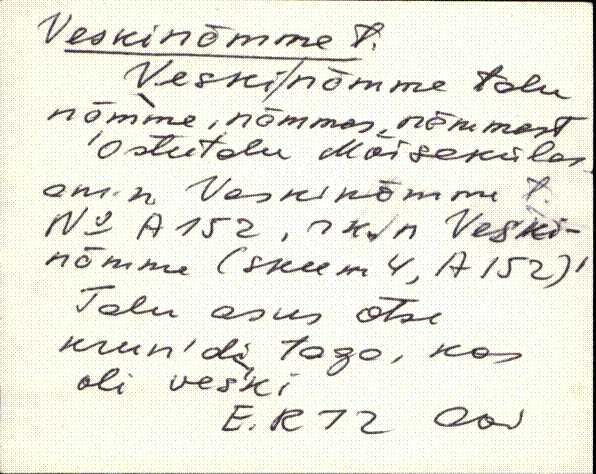 Veskinõmme t.
Veski/nõmme talu
nõm̀me, nõmmes, nõmmest
'Ostutalu Mõisekülas,
am.n. Veskinõmme t.
№ A 152, rk.n Veski-
nõmme (skeem 4, A 152)'
Talu asus otse
krun'di, taga, kos
oli veski
E.R 72